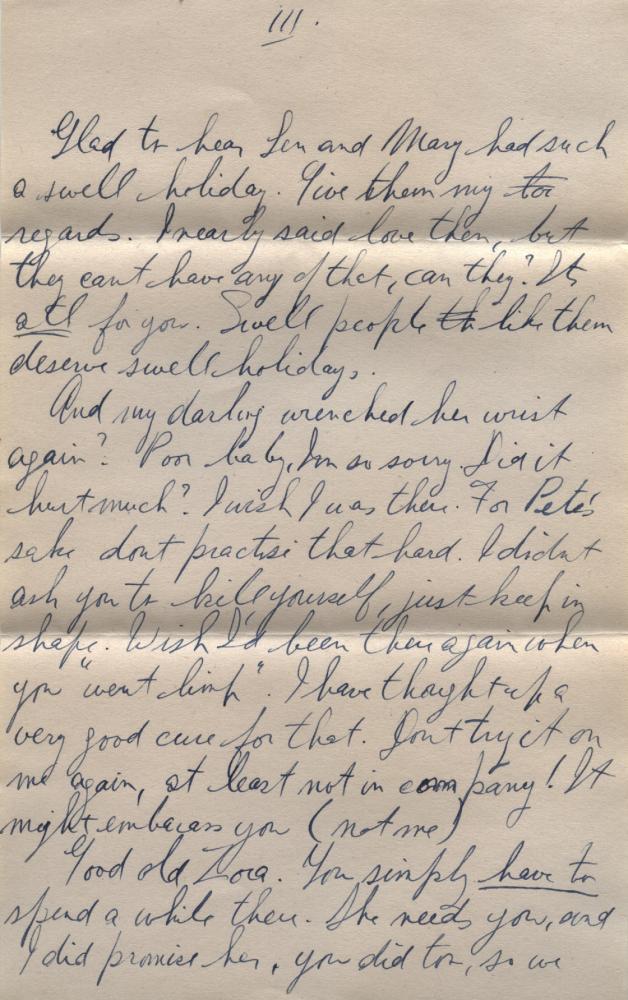 111.
Glad to hear Len and Mary had such
a swell holiday. Give them my
regards. I nearly said love then, but
they cant have any of that, can they? Its
all for you. Swell people like them
deserve swell holidays.
And my darling wrenched her wrist
again? Poor baby, Im so sorry. Did it
hurt much? I wish I was there. For Pete's
sake dont practise that hard. I didnt
ask you to kill yourself, just keep in
shape. Wish I'd been there again when
you "went limp". I have thought up a
very good cure for that. Dont try it on
me again, at least not in company! It
might embarass you (not me)
Good old Zora. You simply have to
spend a while there. She needs you, and
I did promise her, you did too, so we